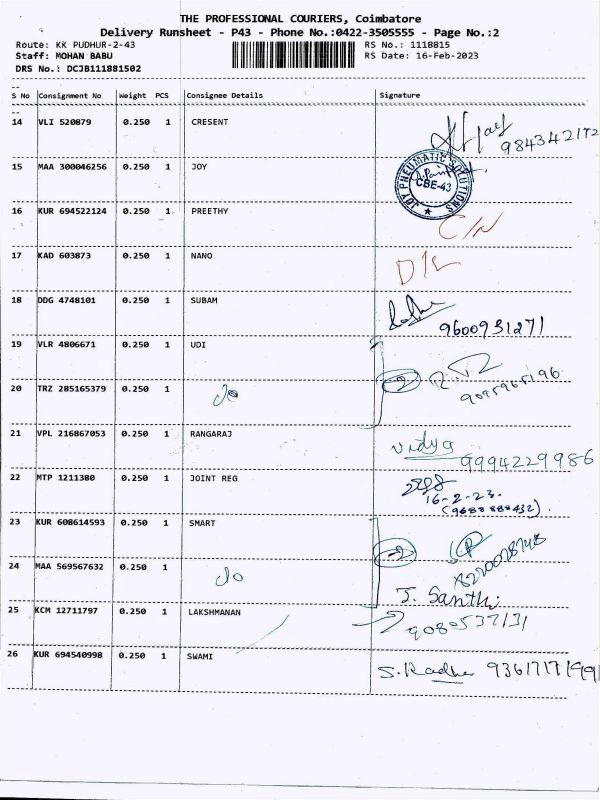 THE PROFESSIONAL COURIERS, Coimbatore
Delivery Runsheet - P43 - Phone No.:0422-3505555 - Page No.:2
Route: KK PUDHUR-2-43 RS No.: 1118815
Staff: MOHAN BABU RS Date: 16-Feb-2023
DRS No.: DCJB111881502
S No Consignment No Weight PCS Consignee Details Signature
14 VLI 520879 0.250 1 CRESENT 984342172
15 MAA 300046256 0.250 1 JOY JOY PNEUMATIC SOLUTIONS CBE-43
16 KUR 694522124 0.250 1 PREETHY C/N
17 KAD 603873 0.250 1 NANO D/L
18 DDG 4748101 0.250 1 SUBAM 9600931271
19 VLR 4806671 0.250 1 UDI
20 TRZ 285165379 0.250 1 do 2
21 VPL 216867053 0.250 1 RANGARAJ vidya 9994229986
22 MTP 1211380 0.250 1 JOINT REG 16-2-23.
(9688888432).
23 KUR 608614593 0.250 1 SMART
24 MAA 569567632 0.250 1 do 2 J. Santhi
25 KCM 12711797 0.250 1 LAKSHMANAN 9080537131
26 KUR 694540998 0.250 1 SWAMI S. Radha